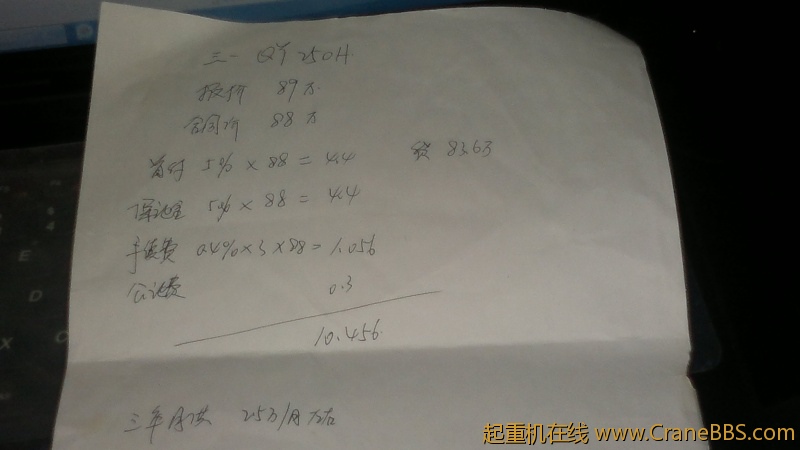 三一 QY 250H
报价 89万
合同价 88万
首付 5% × 88 = 4.4 贷 83.6万
保证金 5% × 88 = 4.4
手续费 0.4% × 3 × 88 = 1.056
公证费 0.3
10.456
三年月供 2.5万/月左右
起重机在线 www.CraneBBS.com